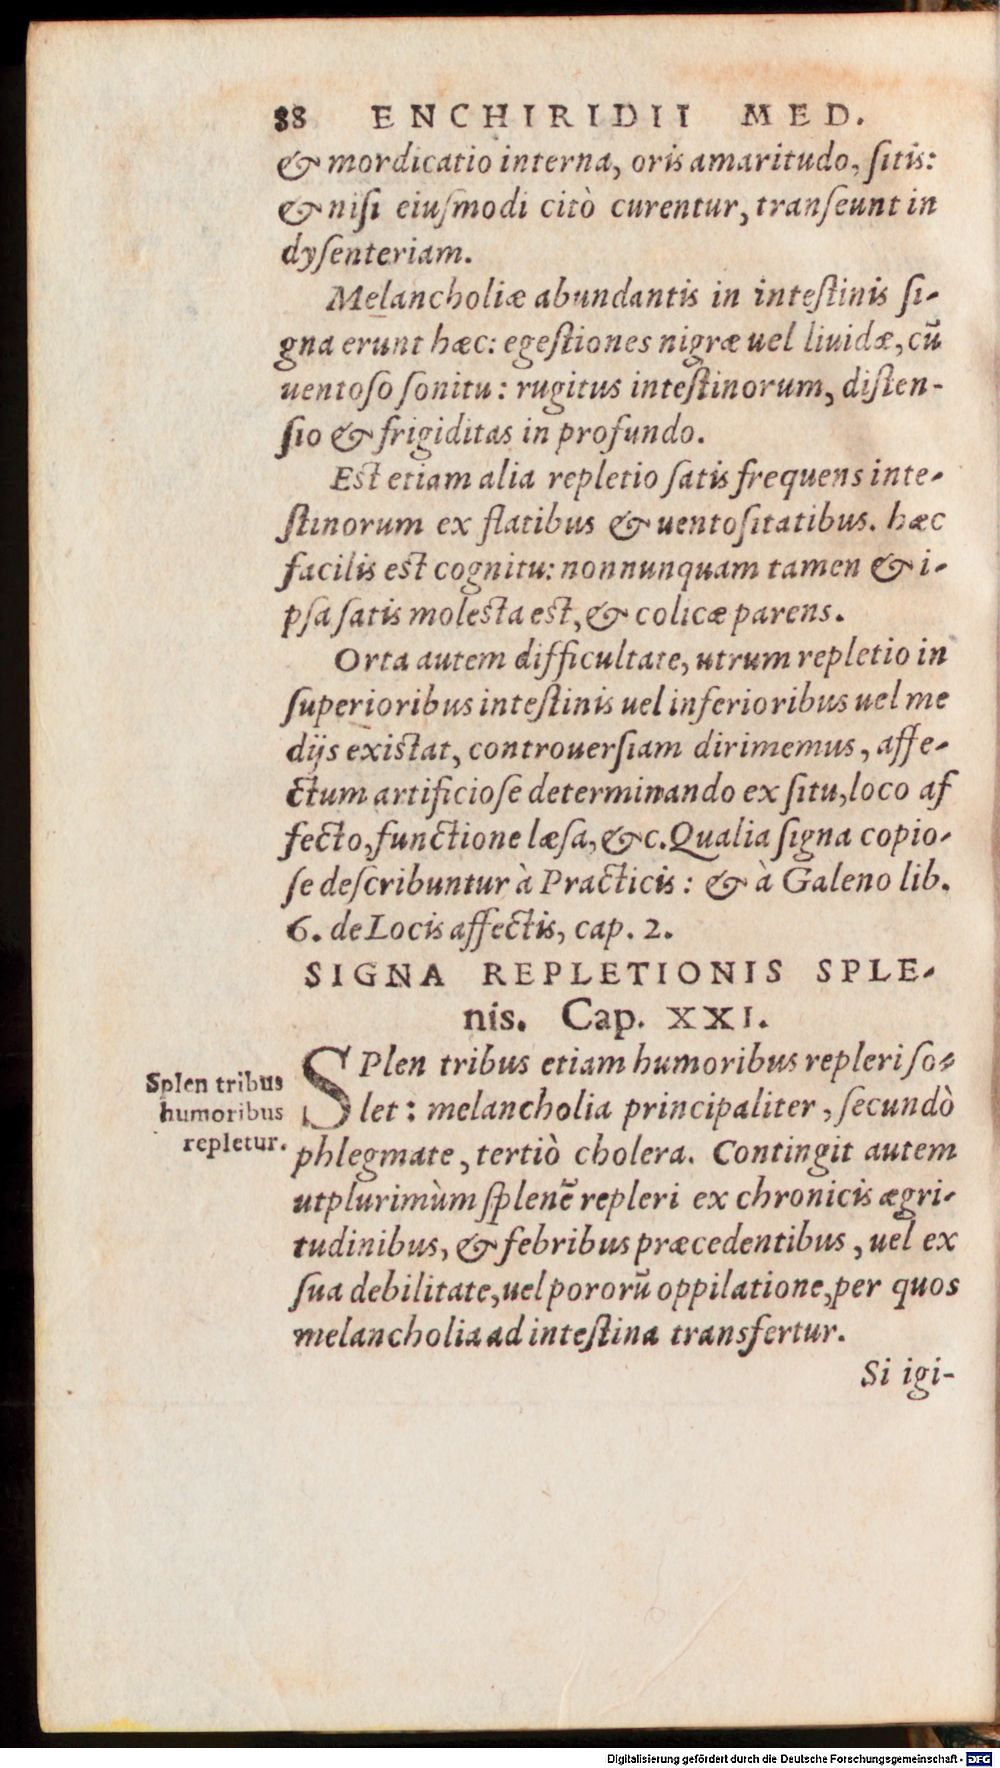 88 ENCHIRIDII MED.
& mordicatio interna, oris amaritudo, ſitis:
& niſi eiuſmodi citò curentur, tranſeunt in
dyſenteriam.
Melancholiæ abundantis in inteſtinis ſi-
gna erunt hæc: egeſtiones nigræ uel liuidæ, cũ
uentoſo ſonitu: rugitus inteſtinorum, diſten-
ſio & frigiditas in profundo.
Est etiam alia repletio ſatis frequens inte-
ſtinorum ex flatibus & uentoſitatibus. hæc
facilis est cognitu: nonnunquam tamen & i-
pſa ſatis molesta est, & colicæ parens.
Orta autem difficultate, utrum repletio in
ſuperioribus inteſtinis uel inferioribus uel me
dijs existat, controuerſiam dirimemus, affe-
ctum artificioſe determinando ex ſitu, loco af
fecto, functione læſa, &c. Qualia ſigna copio-
ſe deſcribuntur à Practicis: & à Galeno lib.
6. de Locis affectis, cap. 2.
SIGNA REPLETIONIS SPLE-
nis. Cap. XXI.
Splen tribus
humoribus
repletur.
SPlen tribus etiam humoribus repleri ſo-
let: melancholia principaliter, ſecundò
phlegmate, tertiò cholera. Contingit autem
utplurimùm ſplenẽ repleri ex chronicis ægri-
tudinibus, & febribus præcedentibus, uel ex
ſua debilitate, uel pororũ oppilatione, per quos
melancholia ad inteſtina transfertur.
Si igi-
Digitalisierung gefördert durch die Deutsche Forschungsgemeinschaft - DFG